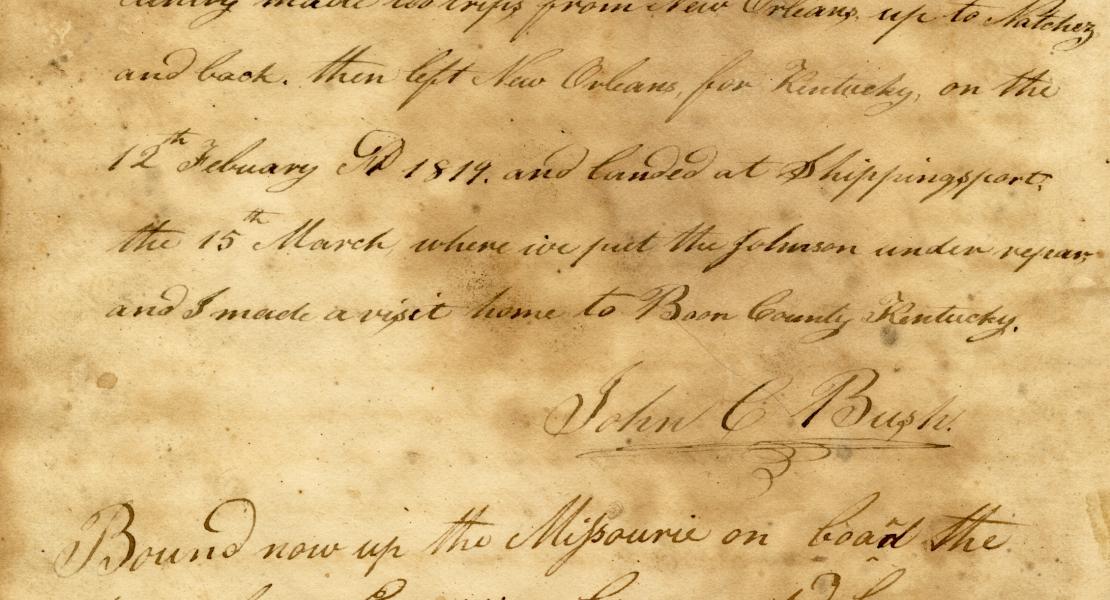 made two trips from New Orleans, up to Natchez
and back. then left New Orleans, for Kentucky, on the
12th Febuary AD 1819. and landed at Shippingsport,
the 15th March, where we put the Johnson under repair
and I made a visit home to Boon County Kentucky.
John C Bush.
Bound now up the Missourie on board the